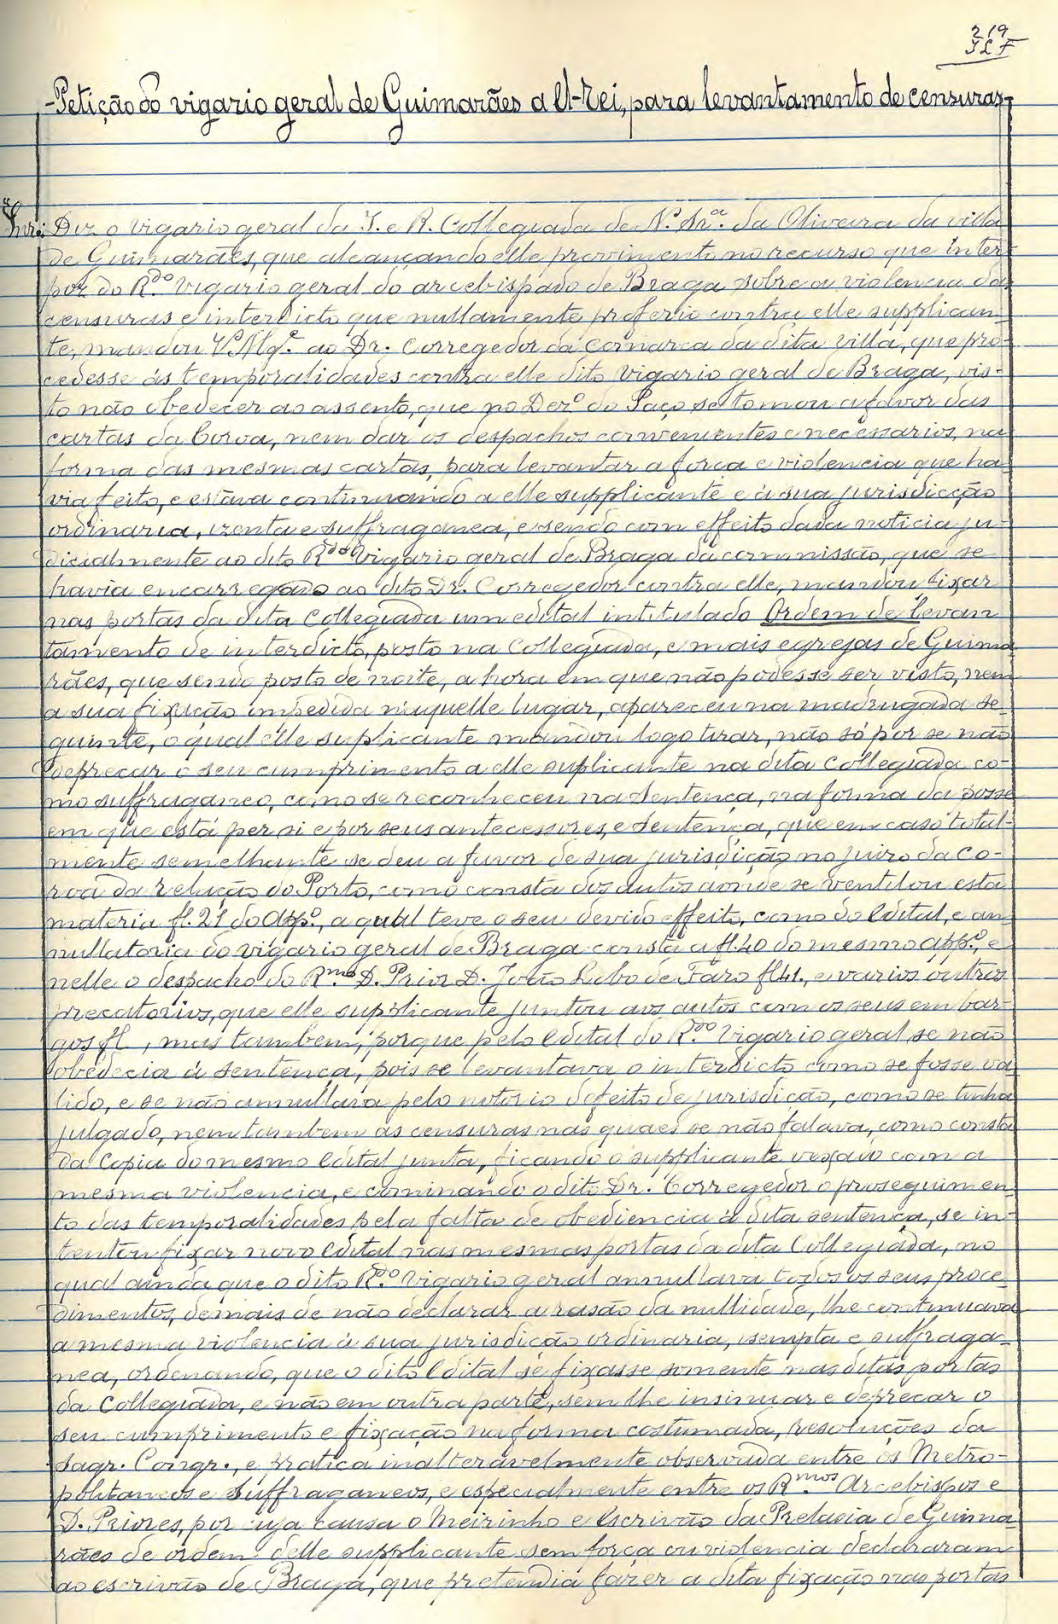 219
-Petição do vigario geral de Guimarães a el-rei, para levantamento de censuras-
"Snr.: Diz o vigario geral da I. e R. Collegiada de N.ª Snr.ª da Oliveira da villa
de Guimarães, que alcançando elle provimento no recurso que inter-
poz do R.do Vigario geral do arcebispado de Braga sobre a violencia das
censuras e interdicto que nullamente proferio contra elle supplican-
te, mandou V. Mg.e ao Dr. Corregedor da comarca da dita villa, que pro-
cedesse ás temporalidades contra elle dito vigario geral de Braga, vis-
to não obedecer ao assento, que no Dez.o do Paço se tomou a favor das
cartas da Coroa, nem dar os despachos convenientes e necessarios, na
forma das mesmas cartas, para levantar a força e violencia que ha-
via feito, e estava continuando a elle supplicante e á sua jurisdicção
ordinaria, izenta e suffraganea, e sendo com effeito dada noticia ju-
dicialmente ao dito R.do Vigario geral de Braga da commissão, que se
havia encarregado ao dito Dr. Corregedor contra elle, mandou fixar
nas portas da dita Collegiada um edital intitulado Ordem de levan
tamento de interdicto, posto na Collegiada, e mais egrejas de Guima-
rães, que sendo posto de noite, a hora em que não podesse ser visto, nem
a sua fixação impedida naquelle lugar, apareceu na madrugada se-
guinte, o qual elle suplicante mandou logo tirar, não só por se não
deprecar o seu cumprimento a elle suplicante na dita Collegiada co-
mo suffraganeo, como se reconheceu na sentença, na forma da posse
em que está per si e por seus antecessores, e sentença, que em caso total-
mente semelhante se deu a favor de sua jurisdição no juizo da co-
roa da relação do Porto, como consta dos autos aonde se ventilou esta
materia fl. 21 do app.o, a qual teve o seu devido effeito, como do Edital, e an-
nullatoria do vigario geral de Braga consta a fl. 40 do mesmo app.o, e
nelle o despacho do R.mo D. Prior D. João Lobo de Faro fl. 41., e varios outros
precatorios, que elle supplicante juntou aos autos com os seus embar-
gos fl , mas tambem, porque pelo Edital do R.do Vigario geral, se não
obedecia á sentença, pois se levantava o interdicto como se fosse va-
lido, e se não annullava pelo notorio defeito de jurisdição, como se tinha
julgado, nem tambem as censuras nas quaes se não falava, como consta
da copia do mesmo Edital junta, ficando o supplicante vexado com a
mesma violencia, e cominando o dito Dr. Corregedor o proseguimen-
to das temporalidades pela falta de obediencia á dita sentença, se in-
tentou fixar novo Edital nas mesmas portas da dita Collegiada, no
qual ainda que o dito R.do Vigario geral annullava todos os seus proce-
dimentos, demais de não declarar a rasão da nullidade, lhe continuava
a mesma violencia á sua jurisdição ordinaria, isempta e suffraga-
nea, ordenando, que o dito Edital se fixasse somente nas ditas portas
da Collegiada, e não em outra parte, sem lhe insinuar e deprecar o
seu cumprimento e fixação na forma costumada, resoluções da
Sagr. Congr., e pratica inalteravelmente observada entre os Metro-
politanos e Suffraganeos, e especialmente entre os R.mos Arcebispos e
D. Priores, por cuja causa o Meirinho e Escrivão da Prelasia de Guima-
rães de ordem delle supplicante sem força ou violencia declararam
ao escrivão de Braga, que pretendia fazer a dita fixação nas portas